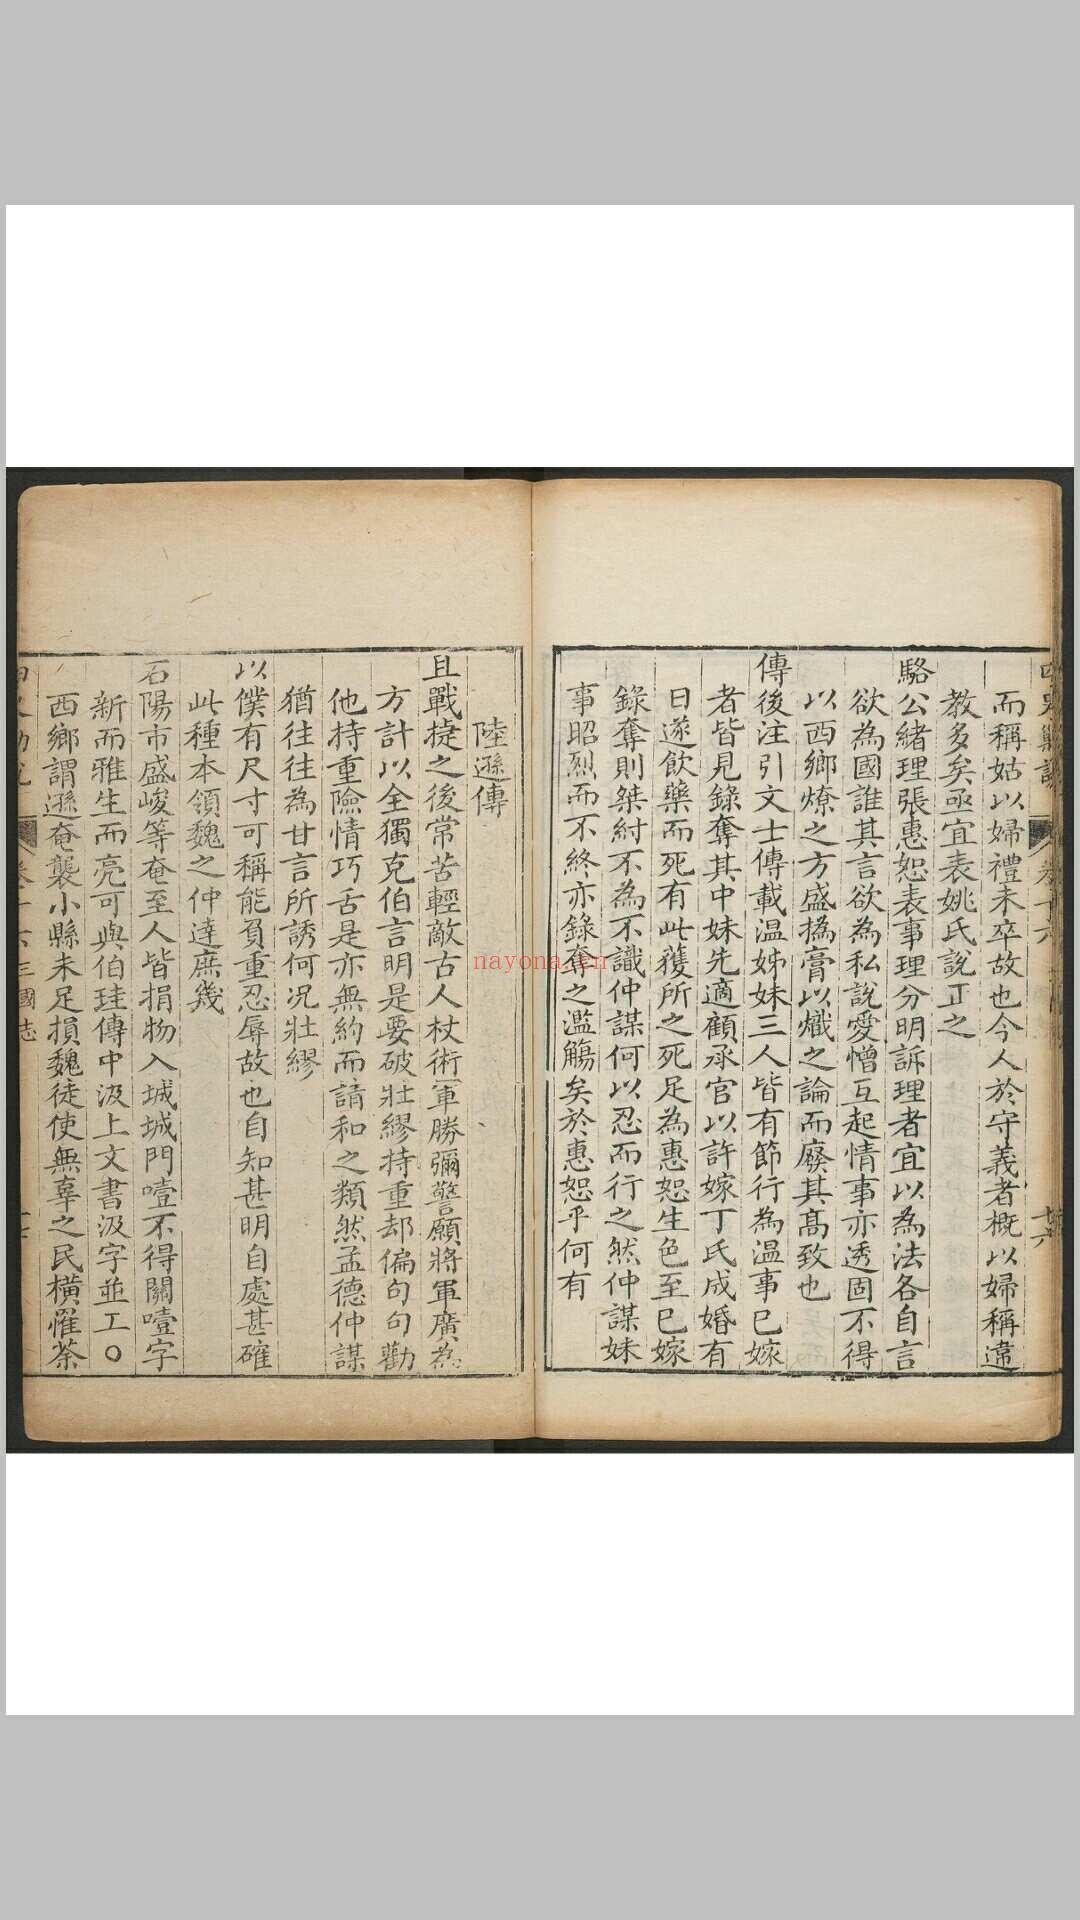 而稱姑以婦禮未卒故也今人於守義者概以婦稱違
教多矣亟宜表姚氏說正之
駱公緒理張惠恕表事理分明訴理者宜以為法各自言
欲為國誰其言欲為私說愛憎互起情事亦透固不得
以西鄉燎之方盛撝膏以熾之論而廢其高致也
傳後注引文士傳載温姊妹三人皆有節行為温事已嫁
者皆見錄奪其中妹先適顧承官以許嫁丁氏成婚有
日遂飲藥而死有此獲所之死足為惠恕生色至已嫁
錄奪則桀紂不為不識仲謀何以忍而行之然仲謀妹
事昭烈而不終亦錄奪之濫觴矣於惠恕乎何有
陸遜傳
且戰捷之後常苦輕敵古人杖術軍勝彌警願將軍廣為
方計以全獨克伯言明是要破壯繆持重却偏句句勸
他持重險情巧舌是亦無約而請和之類然孟德仲謀
猶往往為甘言所誘何况壯繆
以僕有尺寸可稱能負重忍辱故也自知甚明自處甚確
此種本領魏之仲達庶幾
石陽市盛峻等奄至人皆捐物入城城門噎不得關噎字
新而雅生而亮可與伯珪傳中汲上文書汲字並工○
西鄉謂遜奄襲小縣未足損魏徒使無辜之民橫罹荼
三國志
nayona.cn